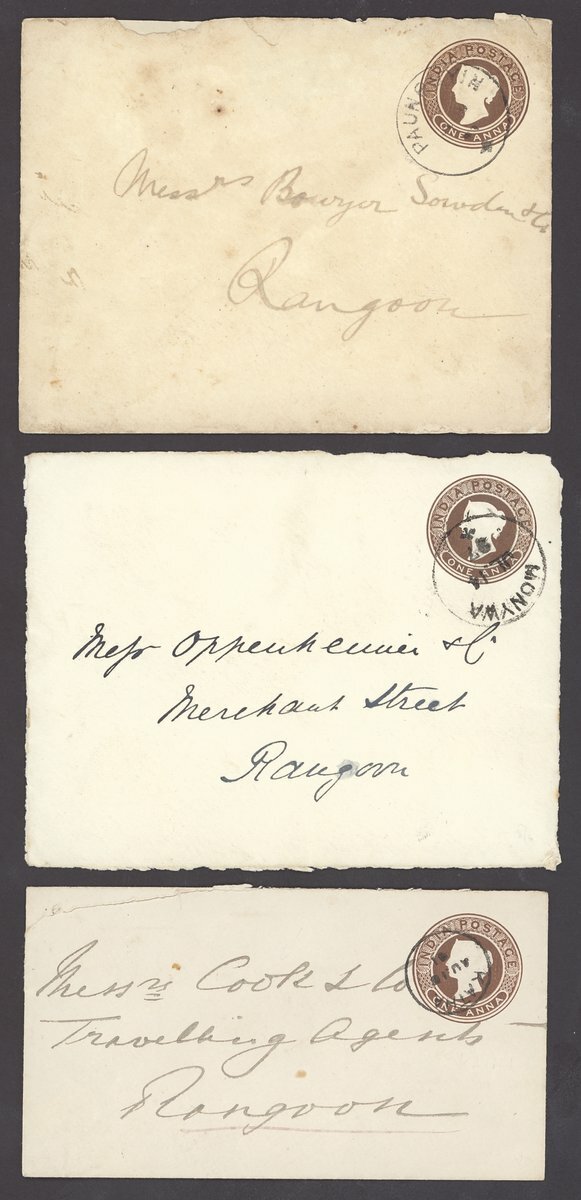 INDIA POSTAGE
ONE ANNA
Messrs Bowyer Sowden & Co
Rangoon
INDIA POSTAGE
ONE ANNA
MONYWA
Messr Oppenheimer & Co
Merchant Street
Rangoon
INDIA POSTAGE
ONE ANNA
AU
Messrs Cook & Co
Travelling Agents
Rangoon